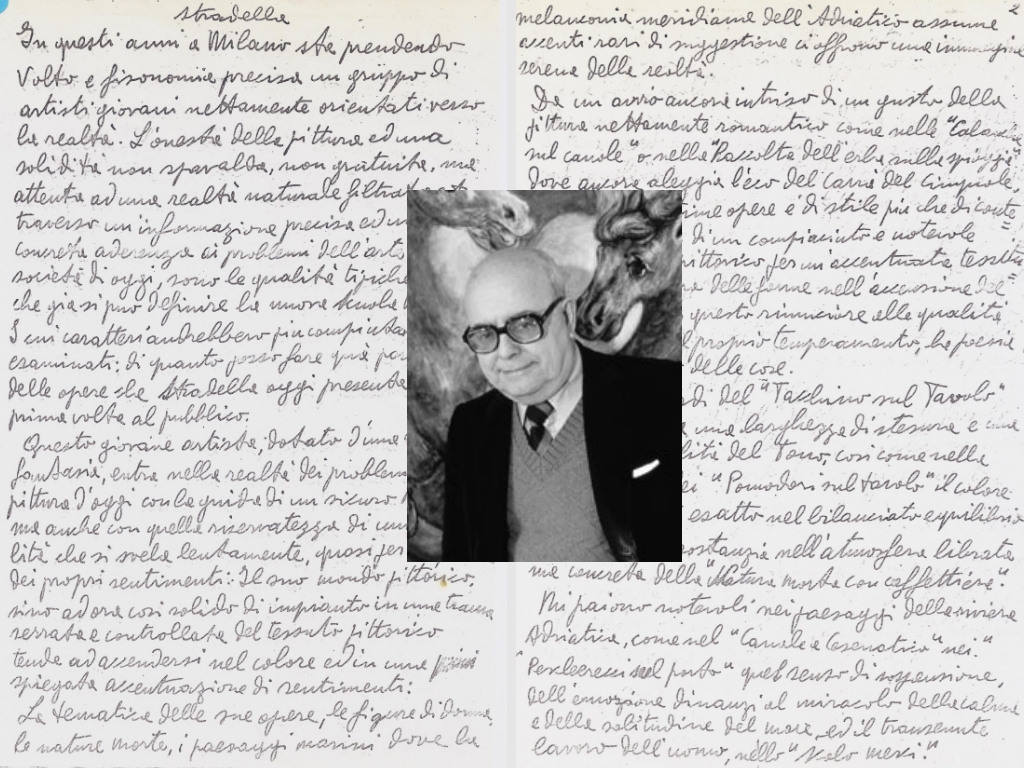 stradella
In questi anni a Milano sta prendendo
Volto e fisonomia precisa un gruppo di
artisti giovani nettamente orientati verso
la realtà. L'onestà della pittura ed una
solidità non spavalda, non gratuita, ma
attenta ad una realtà naturale filtrata
traverso un'informazione precisa ed
concreta aderenza ai problemi dell'arte
società di oggi, sono le qualità tipiche
che già si può definire la nuova scuola
I cui caratteri andrebbero più compiuta
esaminati: di quanto posso fare quì
delle opere che Stradella oggi presenta
prima volta al pubblico.
Questo giovane artista, dotato d'una
fantasia, entra nella realtà dei problemi
pittura d'oggi con la guida di un sicuro
ma anche con quella riservatezza di
lità che si svela lentamente, quasi per
dei propri sentimenti: Il suo mondo pittorico,
sino ad ora così solido di impianto in una trama
serrata e controllata del tessuto pittorico
tende ad accendersi nel colore ed in una
spiegata accentuazione di sentimenti:
La tematica delle sue opere, le figure di donna,
le nature morte, i paesaggi marini dove la
2
melanconia meridiana dell'Adriatico assume
accenti rari di suggestione ci offrono una immagine
serena della realtà.
Da un avvio ancora intriso di un gusto della
pittura nettamente romantico come nelle "Calancho
sul canale" o nella "Raccolta dell'erba sulla spiaggia"
dove ancora aleggia l'eco del Carrà del Cinquale,
ime opere è di stile più che di conte=
di un compiaciuto e notevole
pittorico per un'accentuata tessitu
delle forme nell'accensione del=
questo rinunciare alle qualità
l proprio temperamento, la poesia
delle cose.
di del "Tacchino sul Tavolo"
una larghezza di stesura e una
lità del Tono, così come nella
ei "Pomodori sul tavolo" il colore
esatto nel bilanciato equilibrio
sostanzia nell'atmosfera librata
ma concreta della "Natura morta con caffettiera".
Mi paiono notevoli nei paesaggi della riviera
Adriatica, come nel "Canale a Cesenatico" nei
"Pescherecci nel porto" quel senso di sospensione,
dell'emozione dinanzi al miracolo della calma
e della solitudine del mare, ed il transeunte
lavoro dell'uomo, nello "Scalo merci".